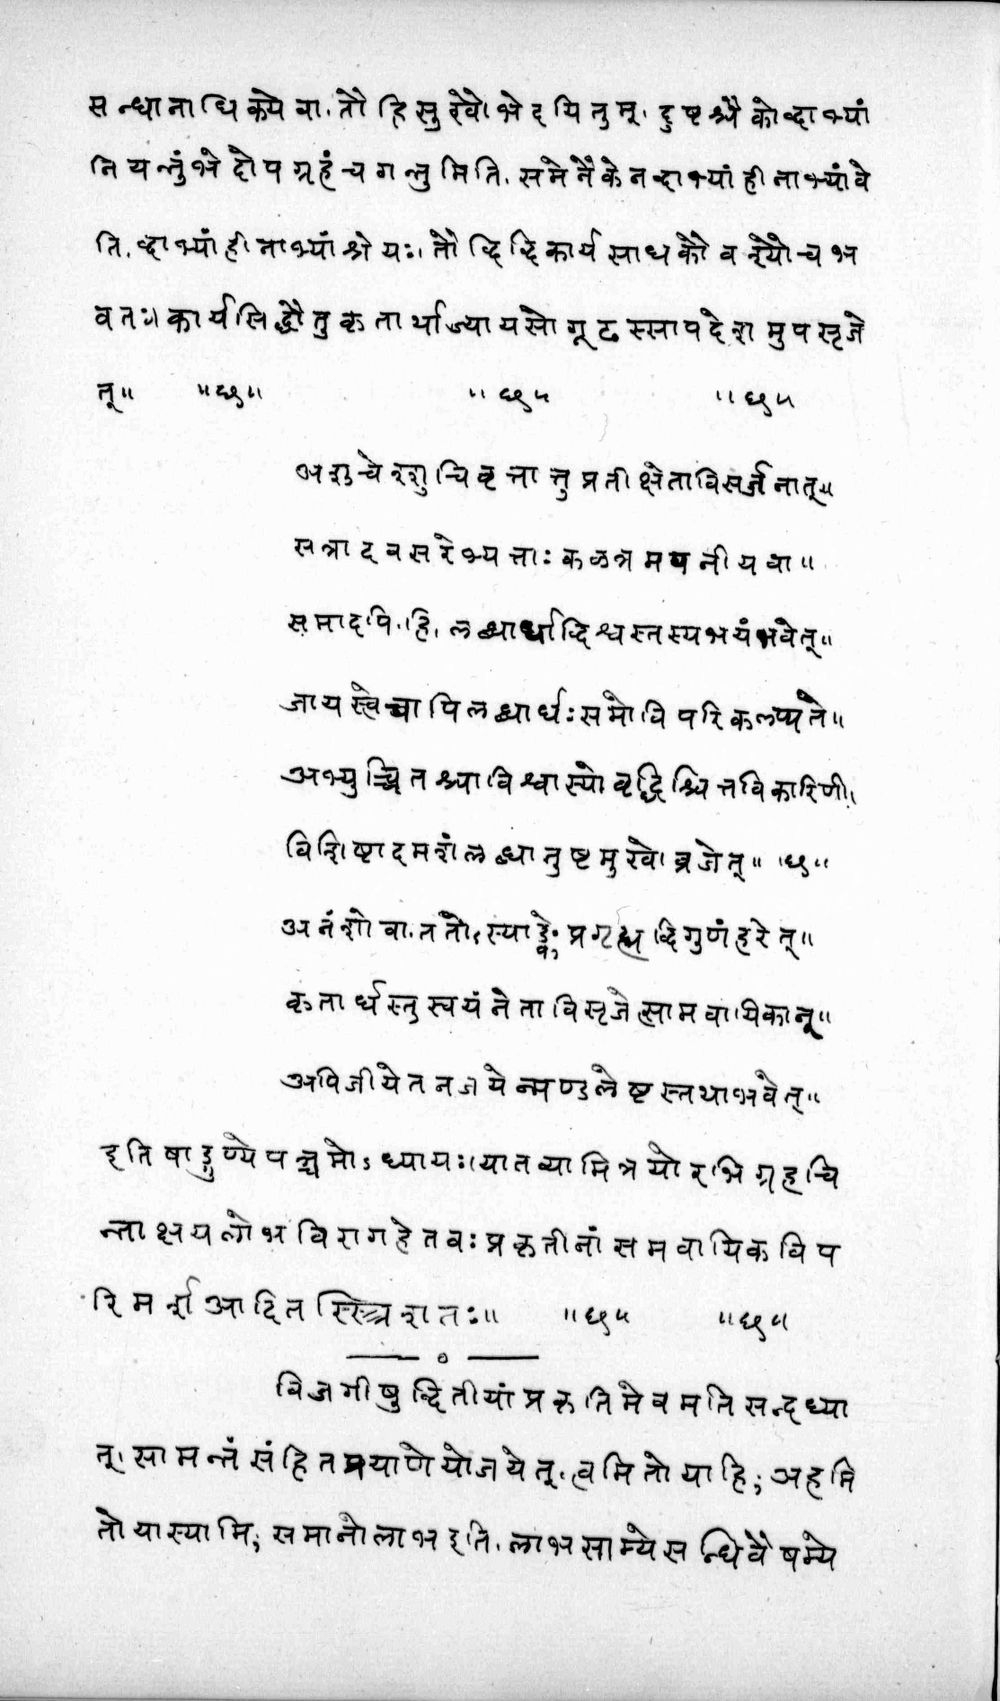 सन्धानाधिक्ये वा. तौ हि सुखेवो भेदयितुम्. दुष्टश्चैको द्वाभ्यां
नियन्तुं भेदोपग्रहं च गन्तुमिति. समेनैकेन द्वाभ्यां हीनाभ्यां वे
ति. द्वाभ्यां हीनाभ्यां श्रेयः। तौ द्विद्विकार्यसाधकौ वश्यौ च भ
वतः। कार्यसिद्धौ तु कृतार्थाज्यायसो गूढस्सापदेशमुपसृजे
त्॥ ॥छ॥ ॥छ॥ ॥छ॥
अशुचेश्शुचिवृत्तात्तु प्रतीक्षेताविसर्जनात्॥
सत्रादवसरेभ्यत्ताः कळत्रमपनीय वा॥
समादपि.हि. लब्धार्थाद्विश्वस्तस्य भयं भवेत्॥
जायस्वे चापि लब्धार्थः समोविपरिकलप्यते॥
अभ्युच्चितश्चाविश्वास्यो वृद्धिश्चित्तविकारिणी।
विशिष्टादमशं लब्धा तुष्टमुखो व्रजेत्॥ ॥छ॥
अनंशो वा. ततोऽस्याङ्के प्रगृह्य द्विगुणं हरेत्॥
कृतार्थस्तु स्वयं नेता विसृजेत्सामवायिकान्॥
अपि जीयेत न जयेन्मण्डलेष्टस्तथा भवेत्॥
इति षाड्गुण्ये पञ्चमोऽध्यायः। यातव्यामित्रयोरभिग्रहचि
न्ता क्षयलोभविरागहेतवः प्रकृतीनां समवायिकविप
रिमर्श आदितस्स्त्रिशतः॥ ॥छ॥ ॥छ॥
विजगीषुद्वितीयां प्रकृतिमेवमतिसन्दध्या
त्. सामन्तं संहितप्रयाणे योजयेत्. त्वमितो याहि; अहमि
तो यास्यामि; समानो लाभ इति. लाभसाम्ये सन्धिवैषम्ये